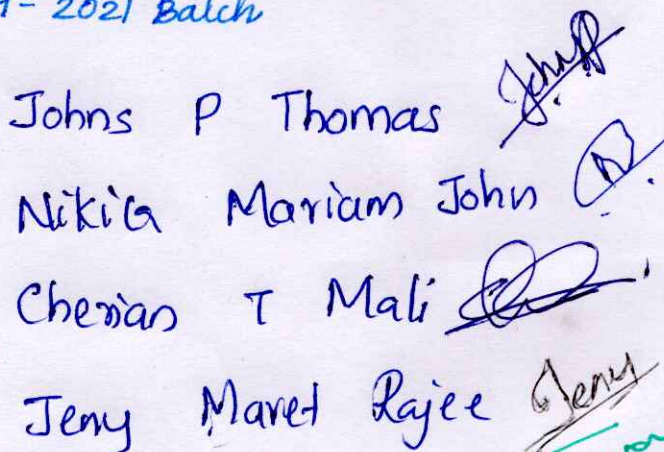 - 2021 Batch
Johns P Thomas Johns
Nikita Mariam John
Cherian T Mali
Jeny Maret Rajee Jeny